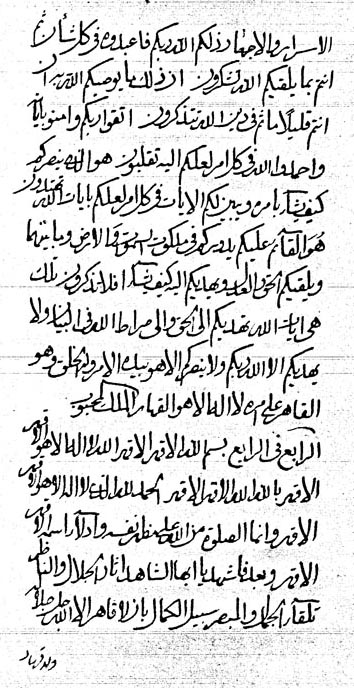 الاسرار والاجهار ذلكم الله ربكم فاعبدوه في كل شأن
انتم بما يلقيكم الله تشكرون ان ذلك ما يوصيكم الله به ان
انتم قليلا ما تم في دين الله تتذكرون اتقوا ربكم وامنوا باياته
واحمدوا الله في كل امر لعلكم اليه تقلبون هو الذي ينصركم
كيف يشاء بامره ويبين لكم الايات في كل امر لعلكم بايات الله تهتدون
هو القائم عليكم يدرككم في ملكوت السموات والارض وما بينهما
ويلقيكم الحق والعدل ويهديكم اليه كيف يشاء افلا تذكرون تلك
هي ايات الله تهديكم الى الحق والى صراط الله في البيان ولا
يهديكم الا الله ربكم ولا ينصركم الا هو بيده الامر والخلق وهو
القاهر على امره لا اله الا هو القهار الملك المحبوب
الرابع في الرابع بسم الله الاقهر الاقهر الله لا اله الا هو الاقهر
الاقهر بالله الله الاقهر الاقهر الحمد لله الذي لا اله الا هو الاقهر
الاقهر وانما الصلوة من الله على مظهر نفسه وادلاء اسمه الاقهر
الاقهر وبعد فاشهد يا ايها الشاهد اثار الجلال والناظر
تلقاء الجمال والمبصر سبيل الكمال بان لا قاهر الا الله جل جلاله